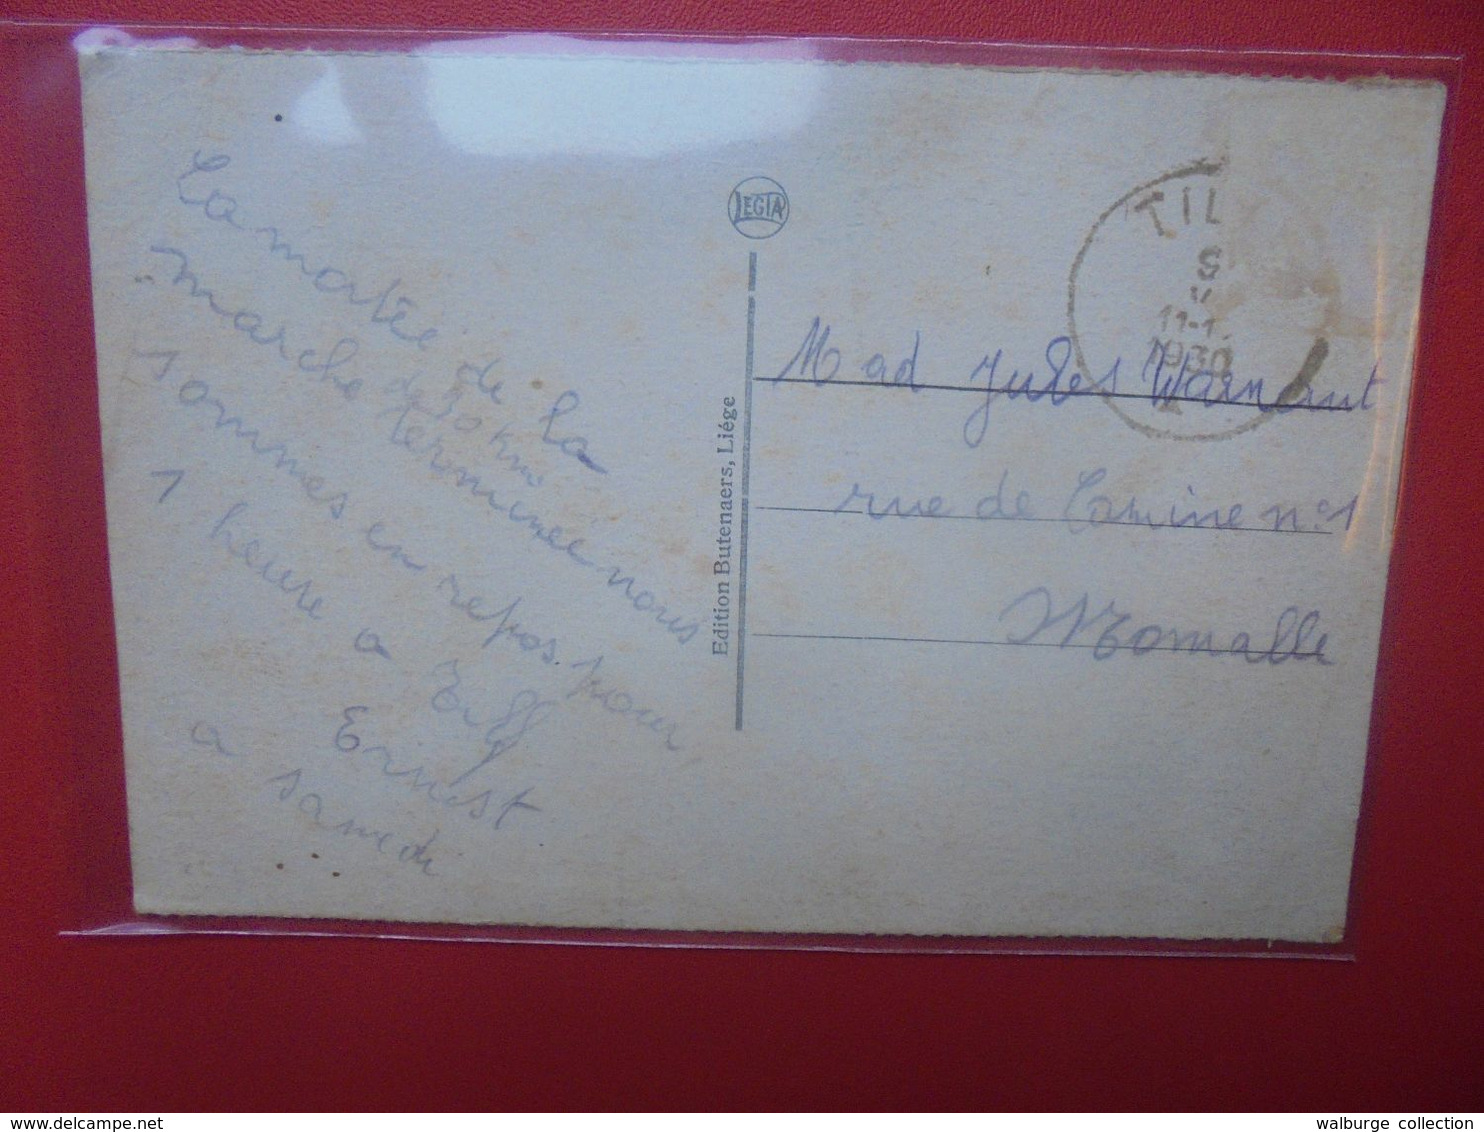 La moitée de la
marche de 30 km
terminée nous
sommes en repos pour
1 heure a Tilff
Ernest
a samedi
LEGIA
Edition Butenaers, Liége
TIL
S
V
11-1
1930
Mad Jules Warnant
rue de Lamine n°1
Momalle
walburge collection